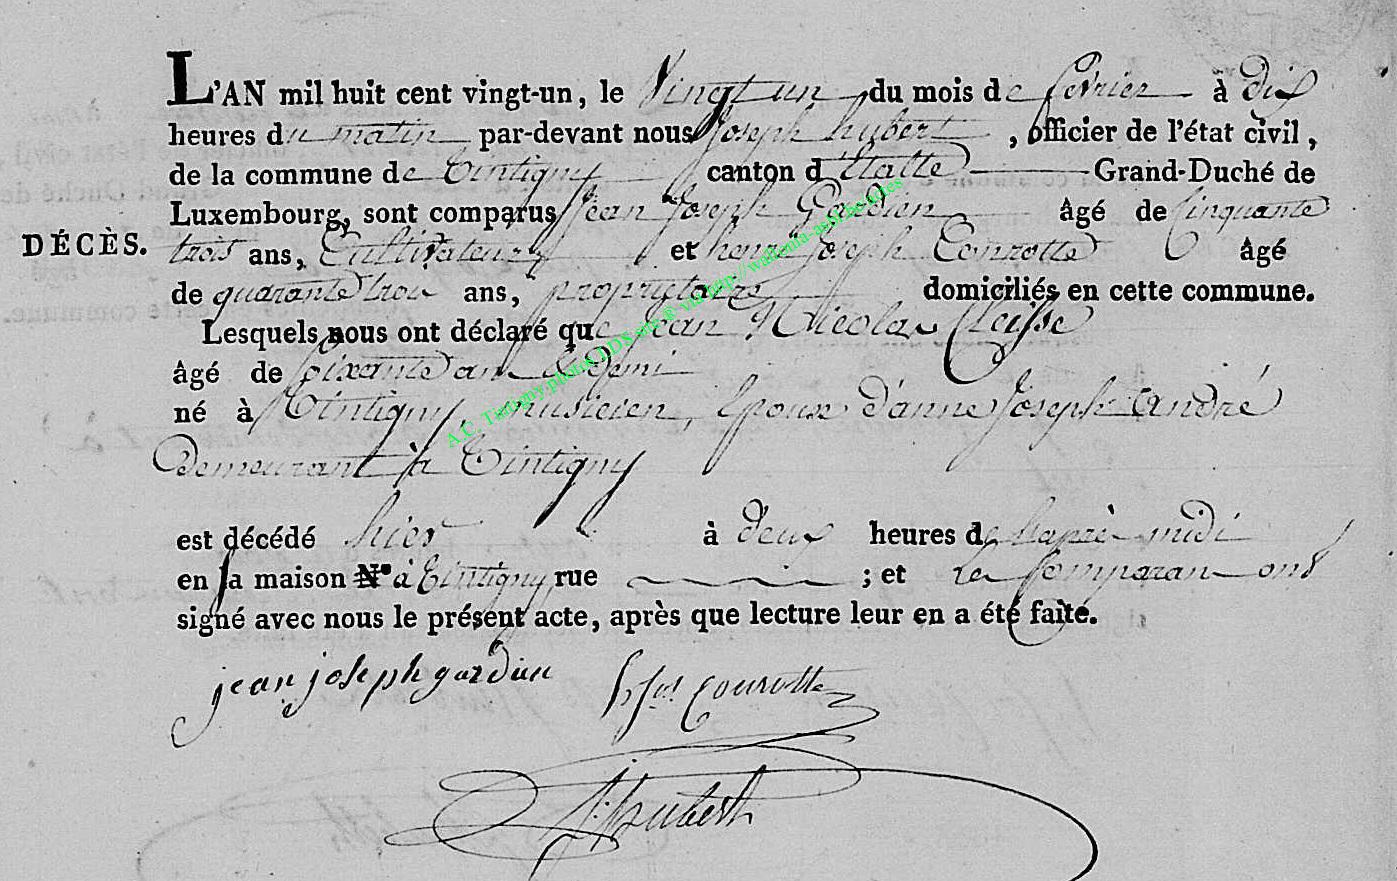 L'AN mil huit cent vingt-un, le Vingt un du mois de fevrier à dix
heures du matin par-devant nous Joseph hubert, officier de l'état civil,
de la commune de Tintigny canton d'Etalle Grand-Duché de
Luxembourg, sont comparus Jean Joseph Gardien âgé de Cinquante
DÉCÈS. trois ans, Cultivateur et henri Joseph Conrotte âgé
de quarante trois ans, propriétaire domiciliés en cette commune.
Lesquels nous ont déclaré que Jean Nicolas
âgé de soixante ans & demi
né à Tintigny, musicien, Epoux d'anne Joseph andré
Demeurant à Tintigny
est décédé hier à deux heures de l'après midi
en sa maison N° à Tintigny rue ; et les Comparans ont
signé avec nous le présent acte, après que lecture leur en a été faite.
jean joseph gardien Conrotte
J. hubert
A.C. Tintigny,photos LDS sur @ via http://wallonia-asbl.be/sites